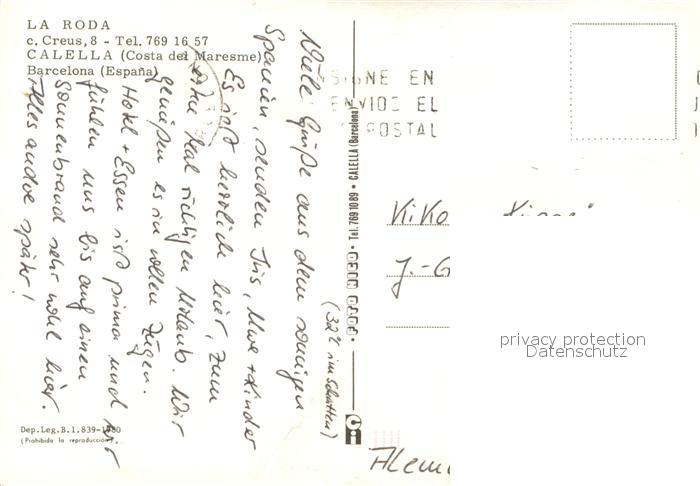 LA RODA
c. Creus, 8 - Tel. 769 16 57
CALELLA (Costa del Maresme)
Barcelona (España)
Viele Grüße aus dem sonnigen
(32°C im Schatten)
Spanien, senden Iris, Uwe + Kinder
Es ist herrlich hier, zum
Mal richtigen Urlaub. Wir
genießen es in vollen Zügen.
Hotel + Essen ist prima und wir
fühlen uns bis auf einen
Sonnenbrand sehr wohl hier.
Alles andre später!
Dep. Leg. B. 1.839-1980
(Prohibida la reproducción).
Tel. 769 10 89 • CALELLA (Barcelona)
CI
GNE EN
ENVIOS EL
POSTAL
Kiko
J.-G
Alem
privacy protection
Datenschutz